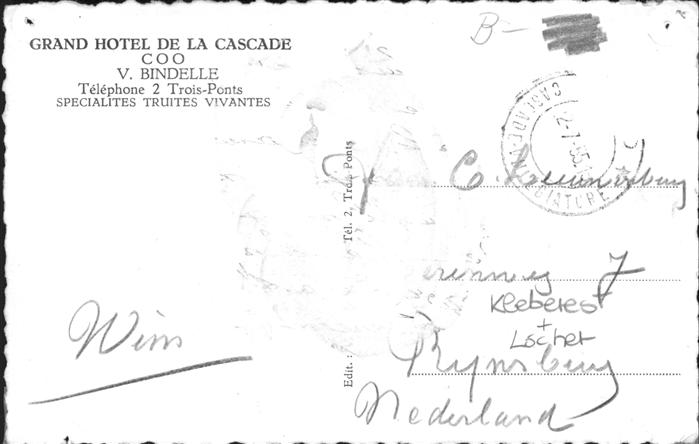 GRAND HOTEL DE LA CASCADE
COO
V. BINDELLE
Téléphone 2 Trois-Ponts
SPECIALITES TRUITES VIVANTES
B-
2-7-55
Tél. 2, Trois Ponts
Edit. :
C.
7
Kleberest
+
Locher
Rynsburg
Nederland
Wim